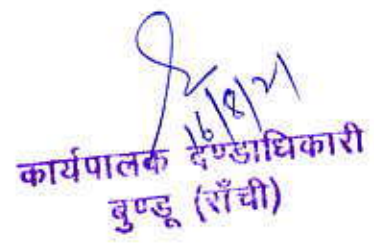 16/8/21
कार्यपालक दण्डाधिकारी
बुण्डू (राँची)